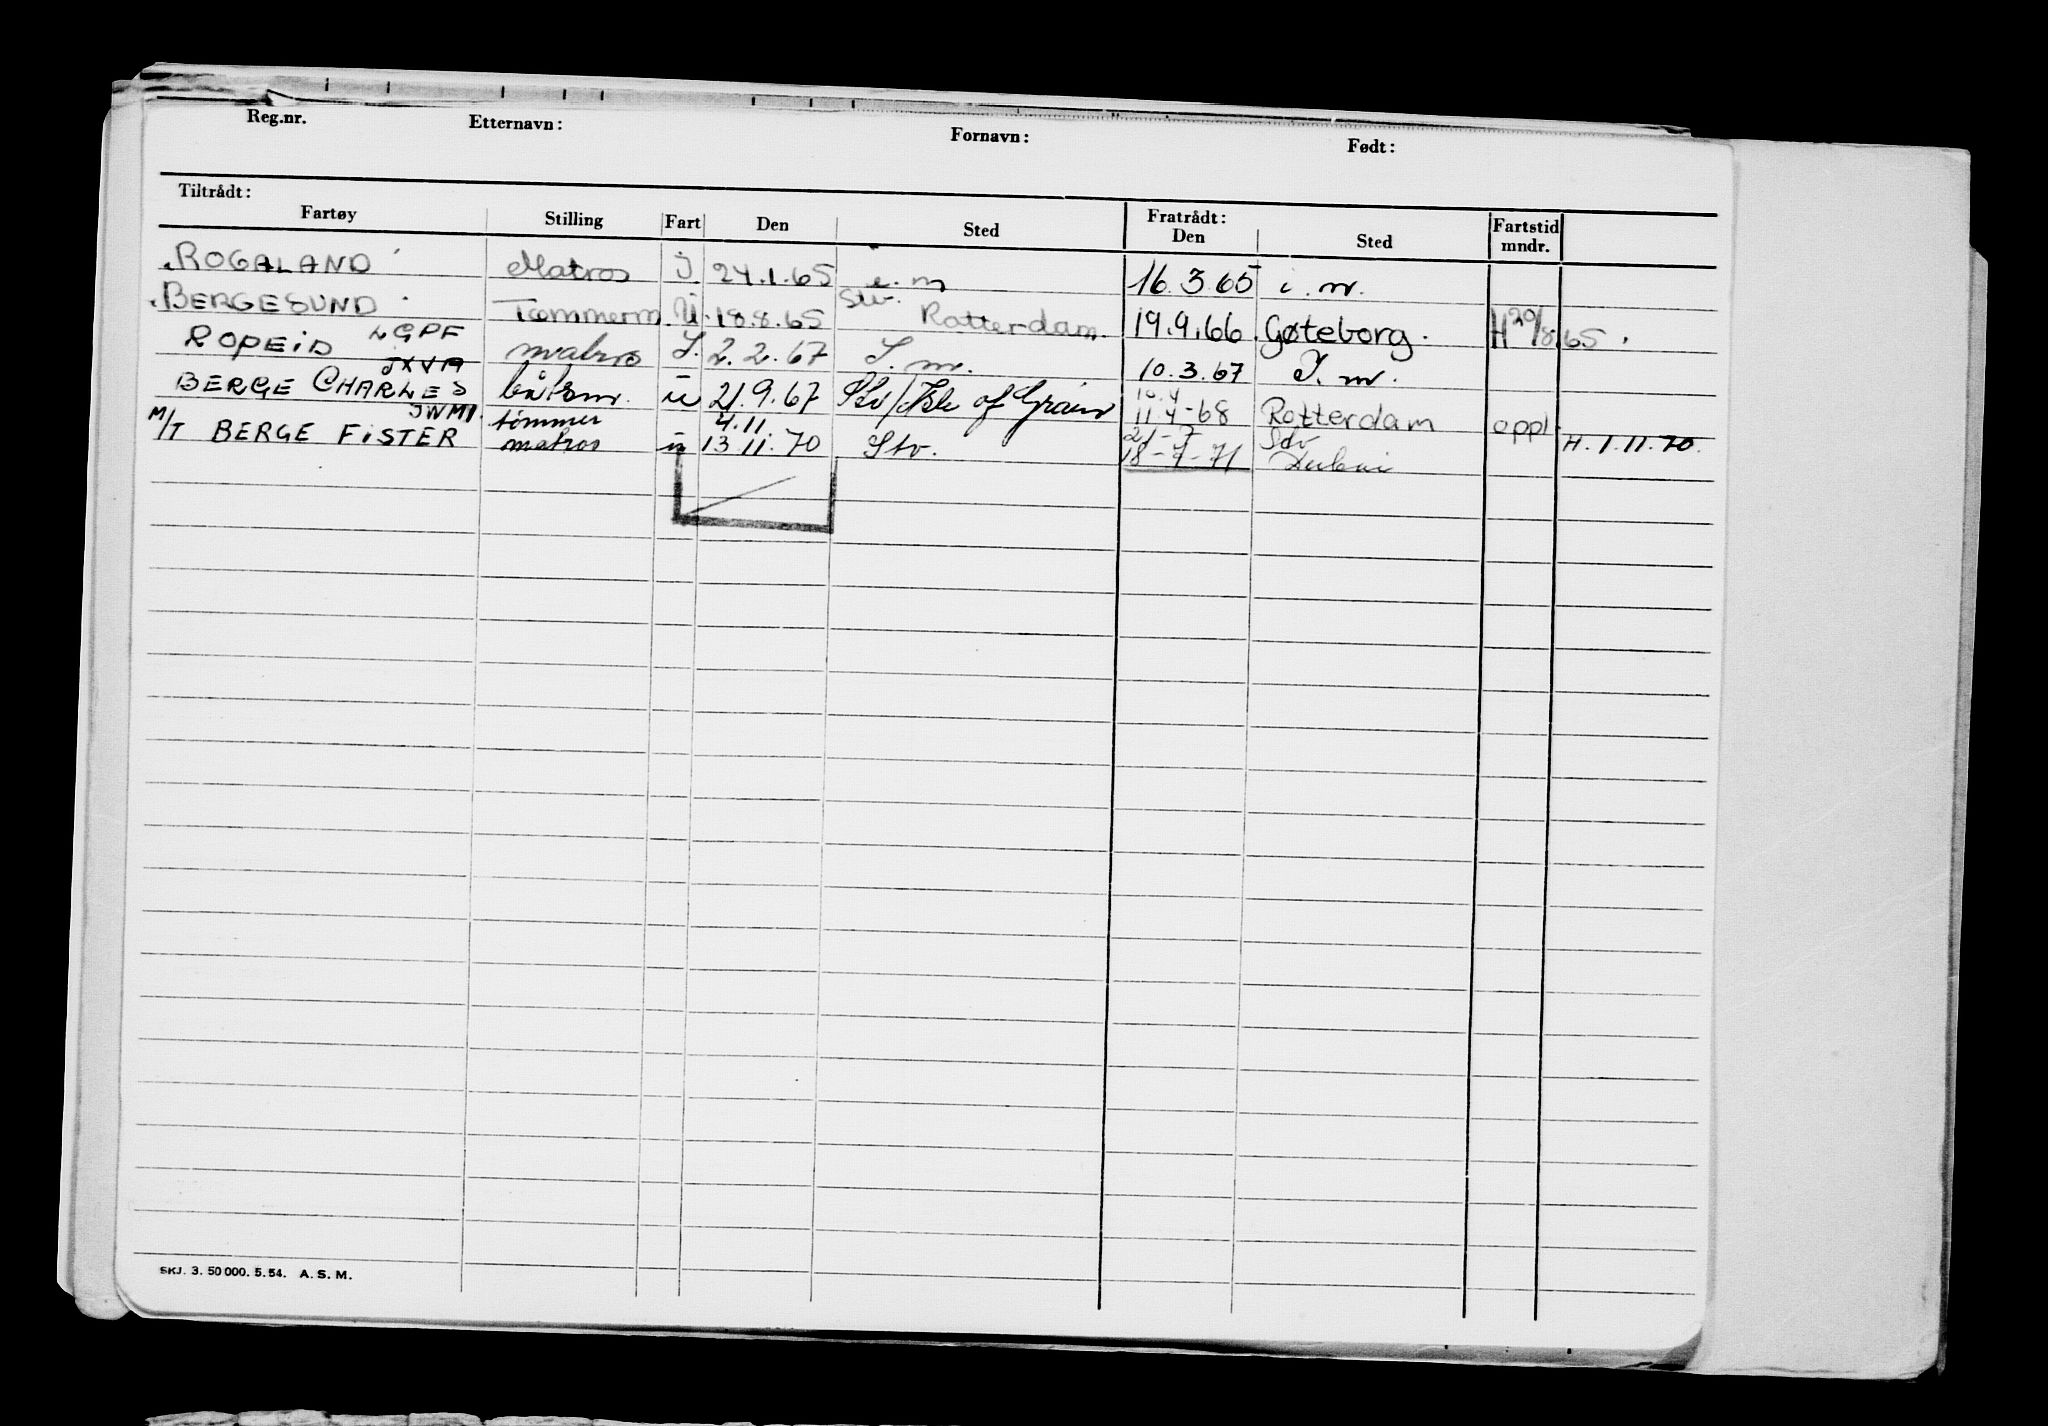 Reg.nr. Etternavn: Fornavn: Født:
Tiltrådt: Fratrådt:
Fartøy Stilling Fart Den Sted Den Sted Fartstid mndr.
ROGALAND Matros I. 24.1.65 i.m. 16.3.65 i.m.
BERGESUND Tømmerm. U. 18.8.65 Stv. Rotterdam. 19.9.66. Gøteborg. H 20/8 65.
ROPEID LGPF matros I. 2.2.67 I.m. 10.3.67 I.m.
JXVA
BERGE CHARLES båtsm. u 21.9.67 Stv/Isle of Grain 10.4 11.4-68 Rotterdam oppl.
JWMI. tømmer 4.11 21-7 Stv
M/T BERGE FISTER matros u 13.11.70 Stv. 18-7-71 Dubai H. 1.11.70.
SKJ. 3. 50 000. 5. 54. A. S. M.